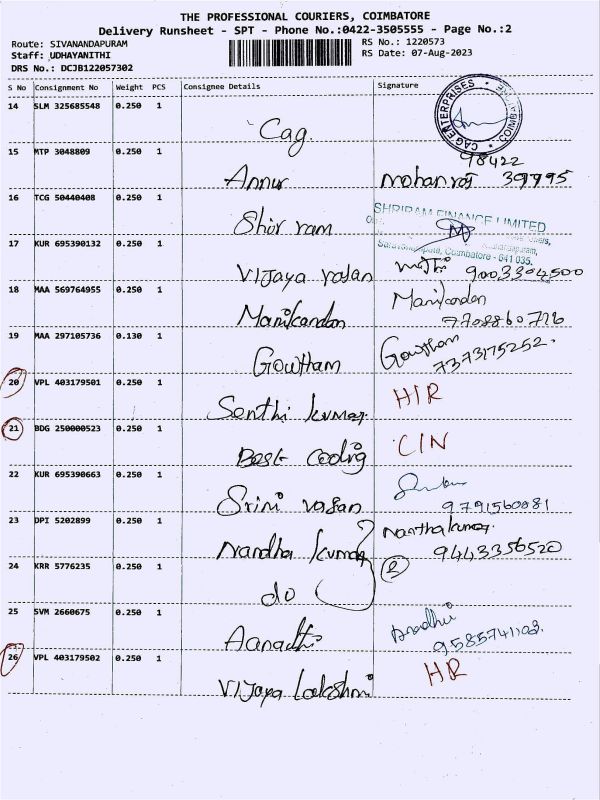 THE PROFESSIONAL COURIERS, COIMBATORE
Delivery Runsheet - SPT - Phone No.:0422-3505555 - Page No.:2
Route: SIVANANDAPURAM RS No.: 1220573
Staff: UDHAYANITHI RS Date: 07-Aug-2023
DRS No.: DCJB122057302
S No Consignment No Weight PCS Consignee Details Signature
14 SLM 325685548 0.250 1
Cag.
CAG ENTERPRISES
15 MTP 3048809 0.250 1
98422
Annur mohanraj 39995
16 TCG 50440408 0.250 1
Shir ram
SHRIRAM FINANCE LIMITED
Coimbatore - 641 035.
17 KUR 695390132 0.250 1
Vijaya rasan 9003304500
18 MAA 569764955 0.250 1
Manikandan Manikandan
7708860716
19 MAA 297105736 0.130 1
Gowtham Gowtham
7373175252.
20 VPL 403179501 0.250 1
Senthi kumar. HIR
21 BDG 250000523 0.250 1
Best cooling CIN
22 KUR 695390663 0.250 1
Srini vasan 9791560081
23 DPI 5202899 0.250 1
Nandha kumar Nantha kumar.
9443356520
24 KRR 5776235 0.250 1
do (2)
25 SVM 2660675 0.250 1
Aaradhi
9585741103.
26 VPL 403179502 0.250 1
Vijaya Lakshmi HR